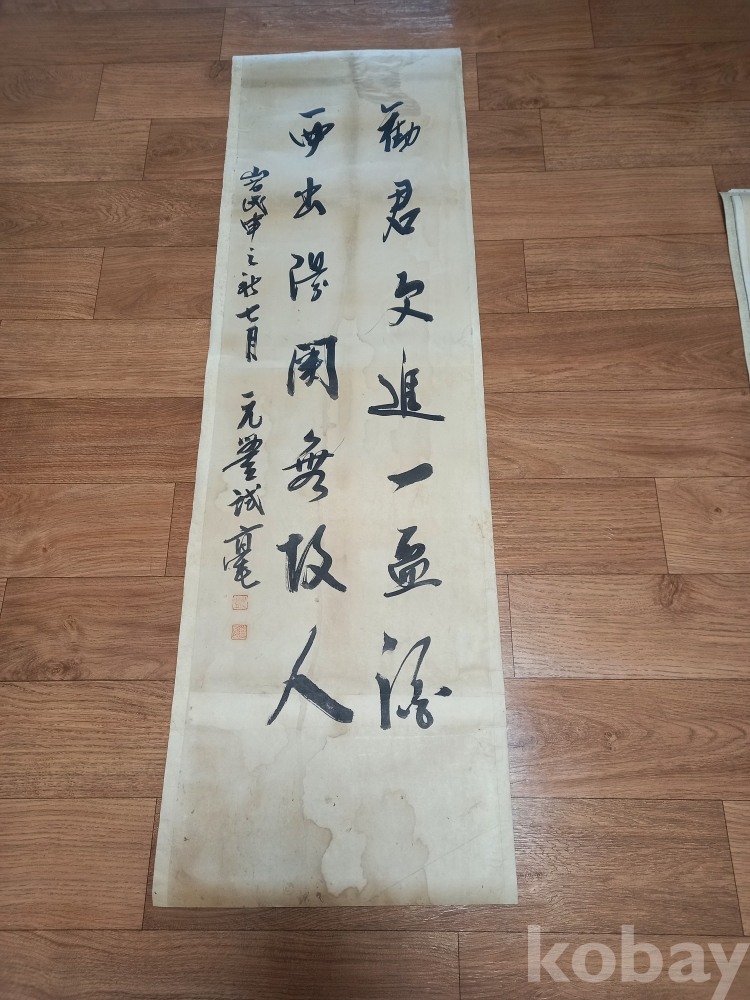 勸君更進一盃酒
西出陽關無故人
戊申之秋七月 元 試毫
kobay